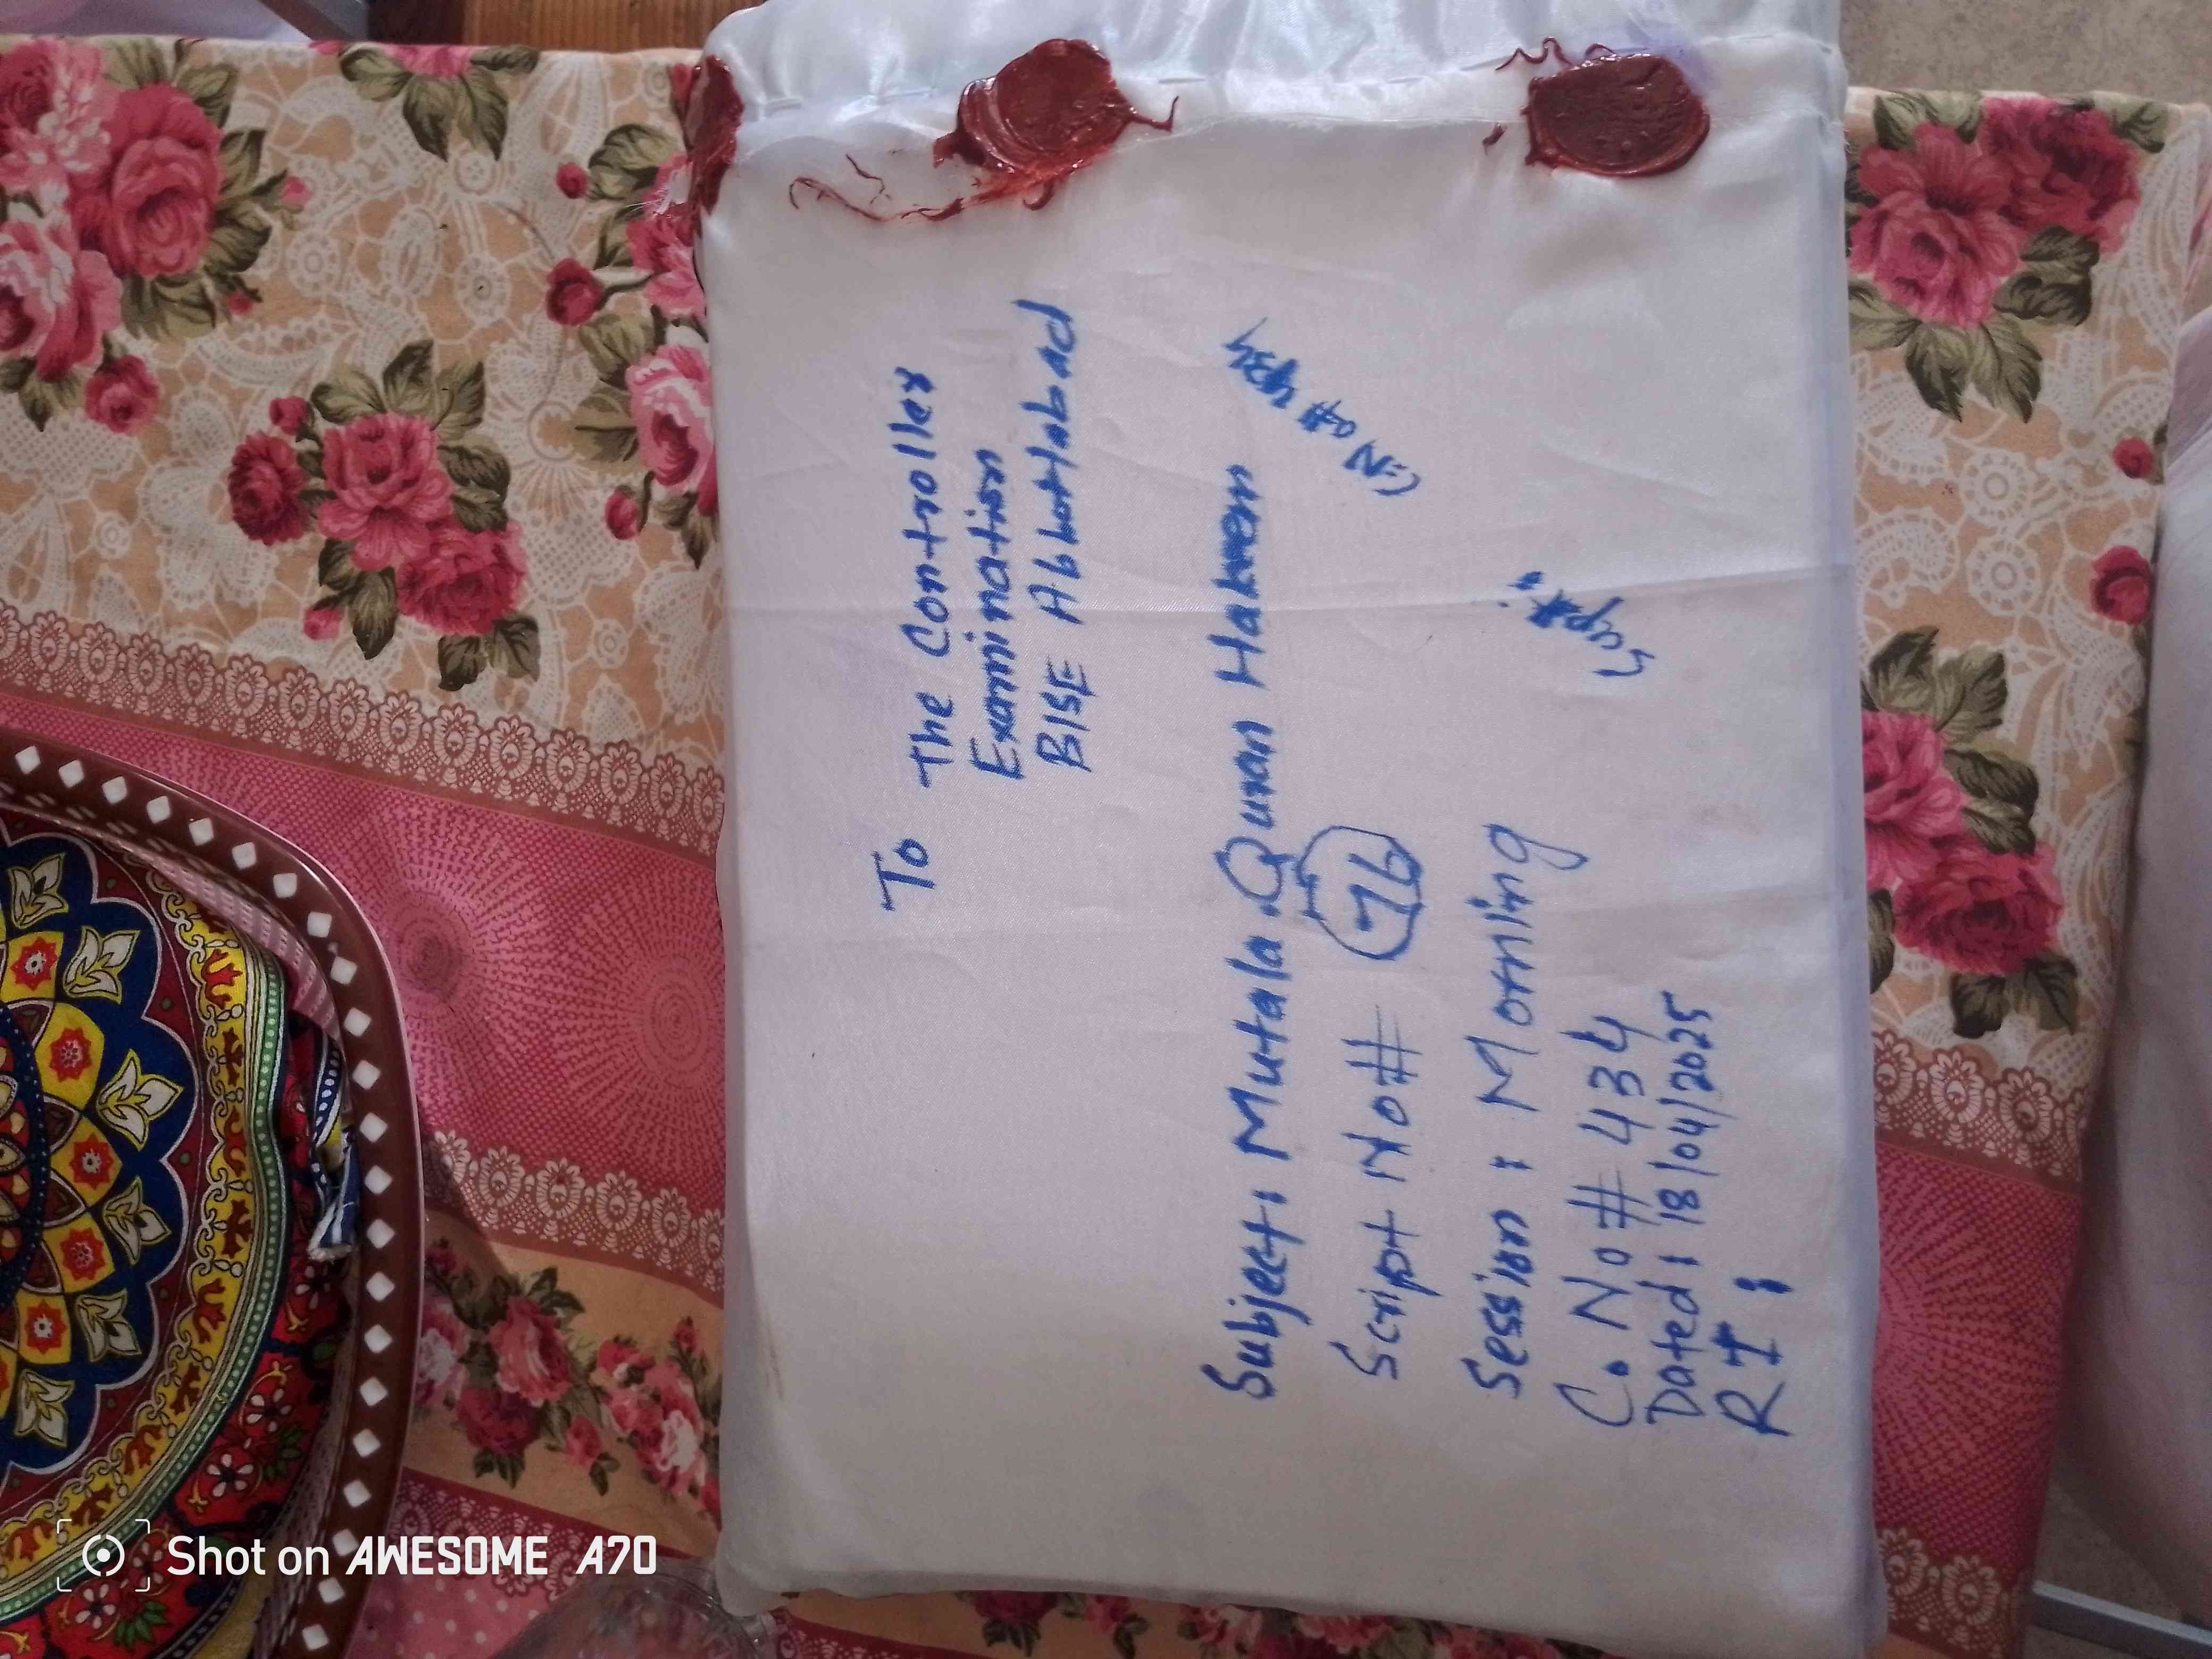 To
The Controller
Examination
BISE Abbottabad
Subject: Mutala Quran Hakeem
Script No# 76
Session : Morning
C. No# 434
Dated: 18/04/2025
RI :
C.No# 434
Supdt:
Shot on AWESOME A70